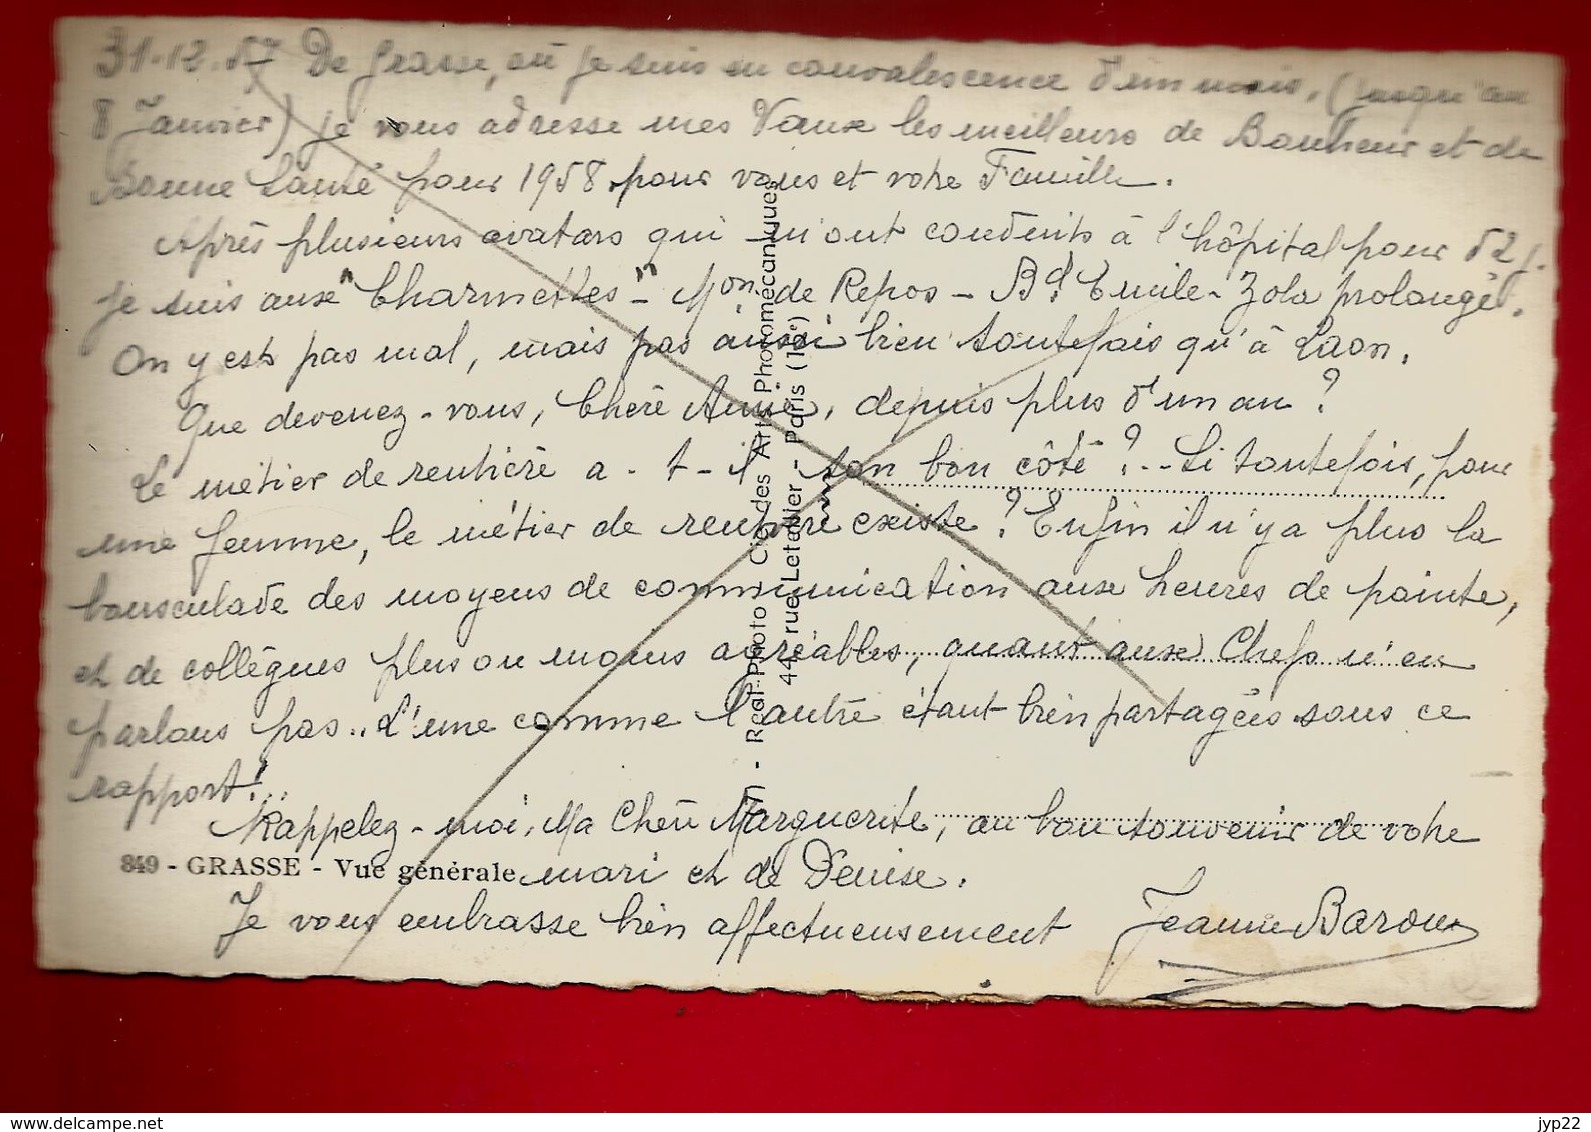 31-12.57 De Grasse, où je suis en convalescence d'un mois, (jusqu'au
8 Janvier) je vous adresse mes Vœux les meilleurs de Bonheur et de
Bonne Santé pour 1958 pour vous et votre Famille.
Après plusieurs avatars qui m'ont conduits à l'hôpital pour 52 j.
je suis aux "Charmettes" - Mon. de Repos - Bd. Emile-Zola prolongé.
On y est pas mal, mais pas aussi bien toutefois qu'à Laon.
Que devenez-vous, Chère Amie, depuis plus d'un an ?
Le métier de rentière a-t-il son bon côté ?.. Si toutefois, pour
une femme, le métier de rentière existe ? Enfin il n'y a plus la
bousculade des moyens de communication aux heures de pointe,
et de collègues plus ou moins agréables, quant aux Chefs n'en
parlons pas.. L'une comme l'autre étant bien partagées sous ce
rapport !...
Rappelez-moi, Ma Chère Marguerite, au bon souvenir de votre
mari et de Denise.
Je vous embrasse bien affectueusement Jeanne Baroux
849 - GRASSE - Vue générale
- Real-Photo - Cie des Arts Photomécaniques
44, rue Letellier - Paris (15e)
jyp22